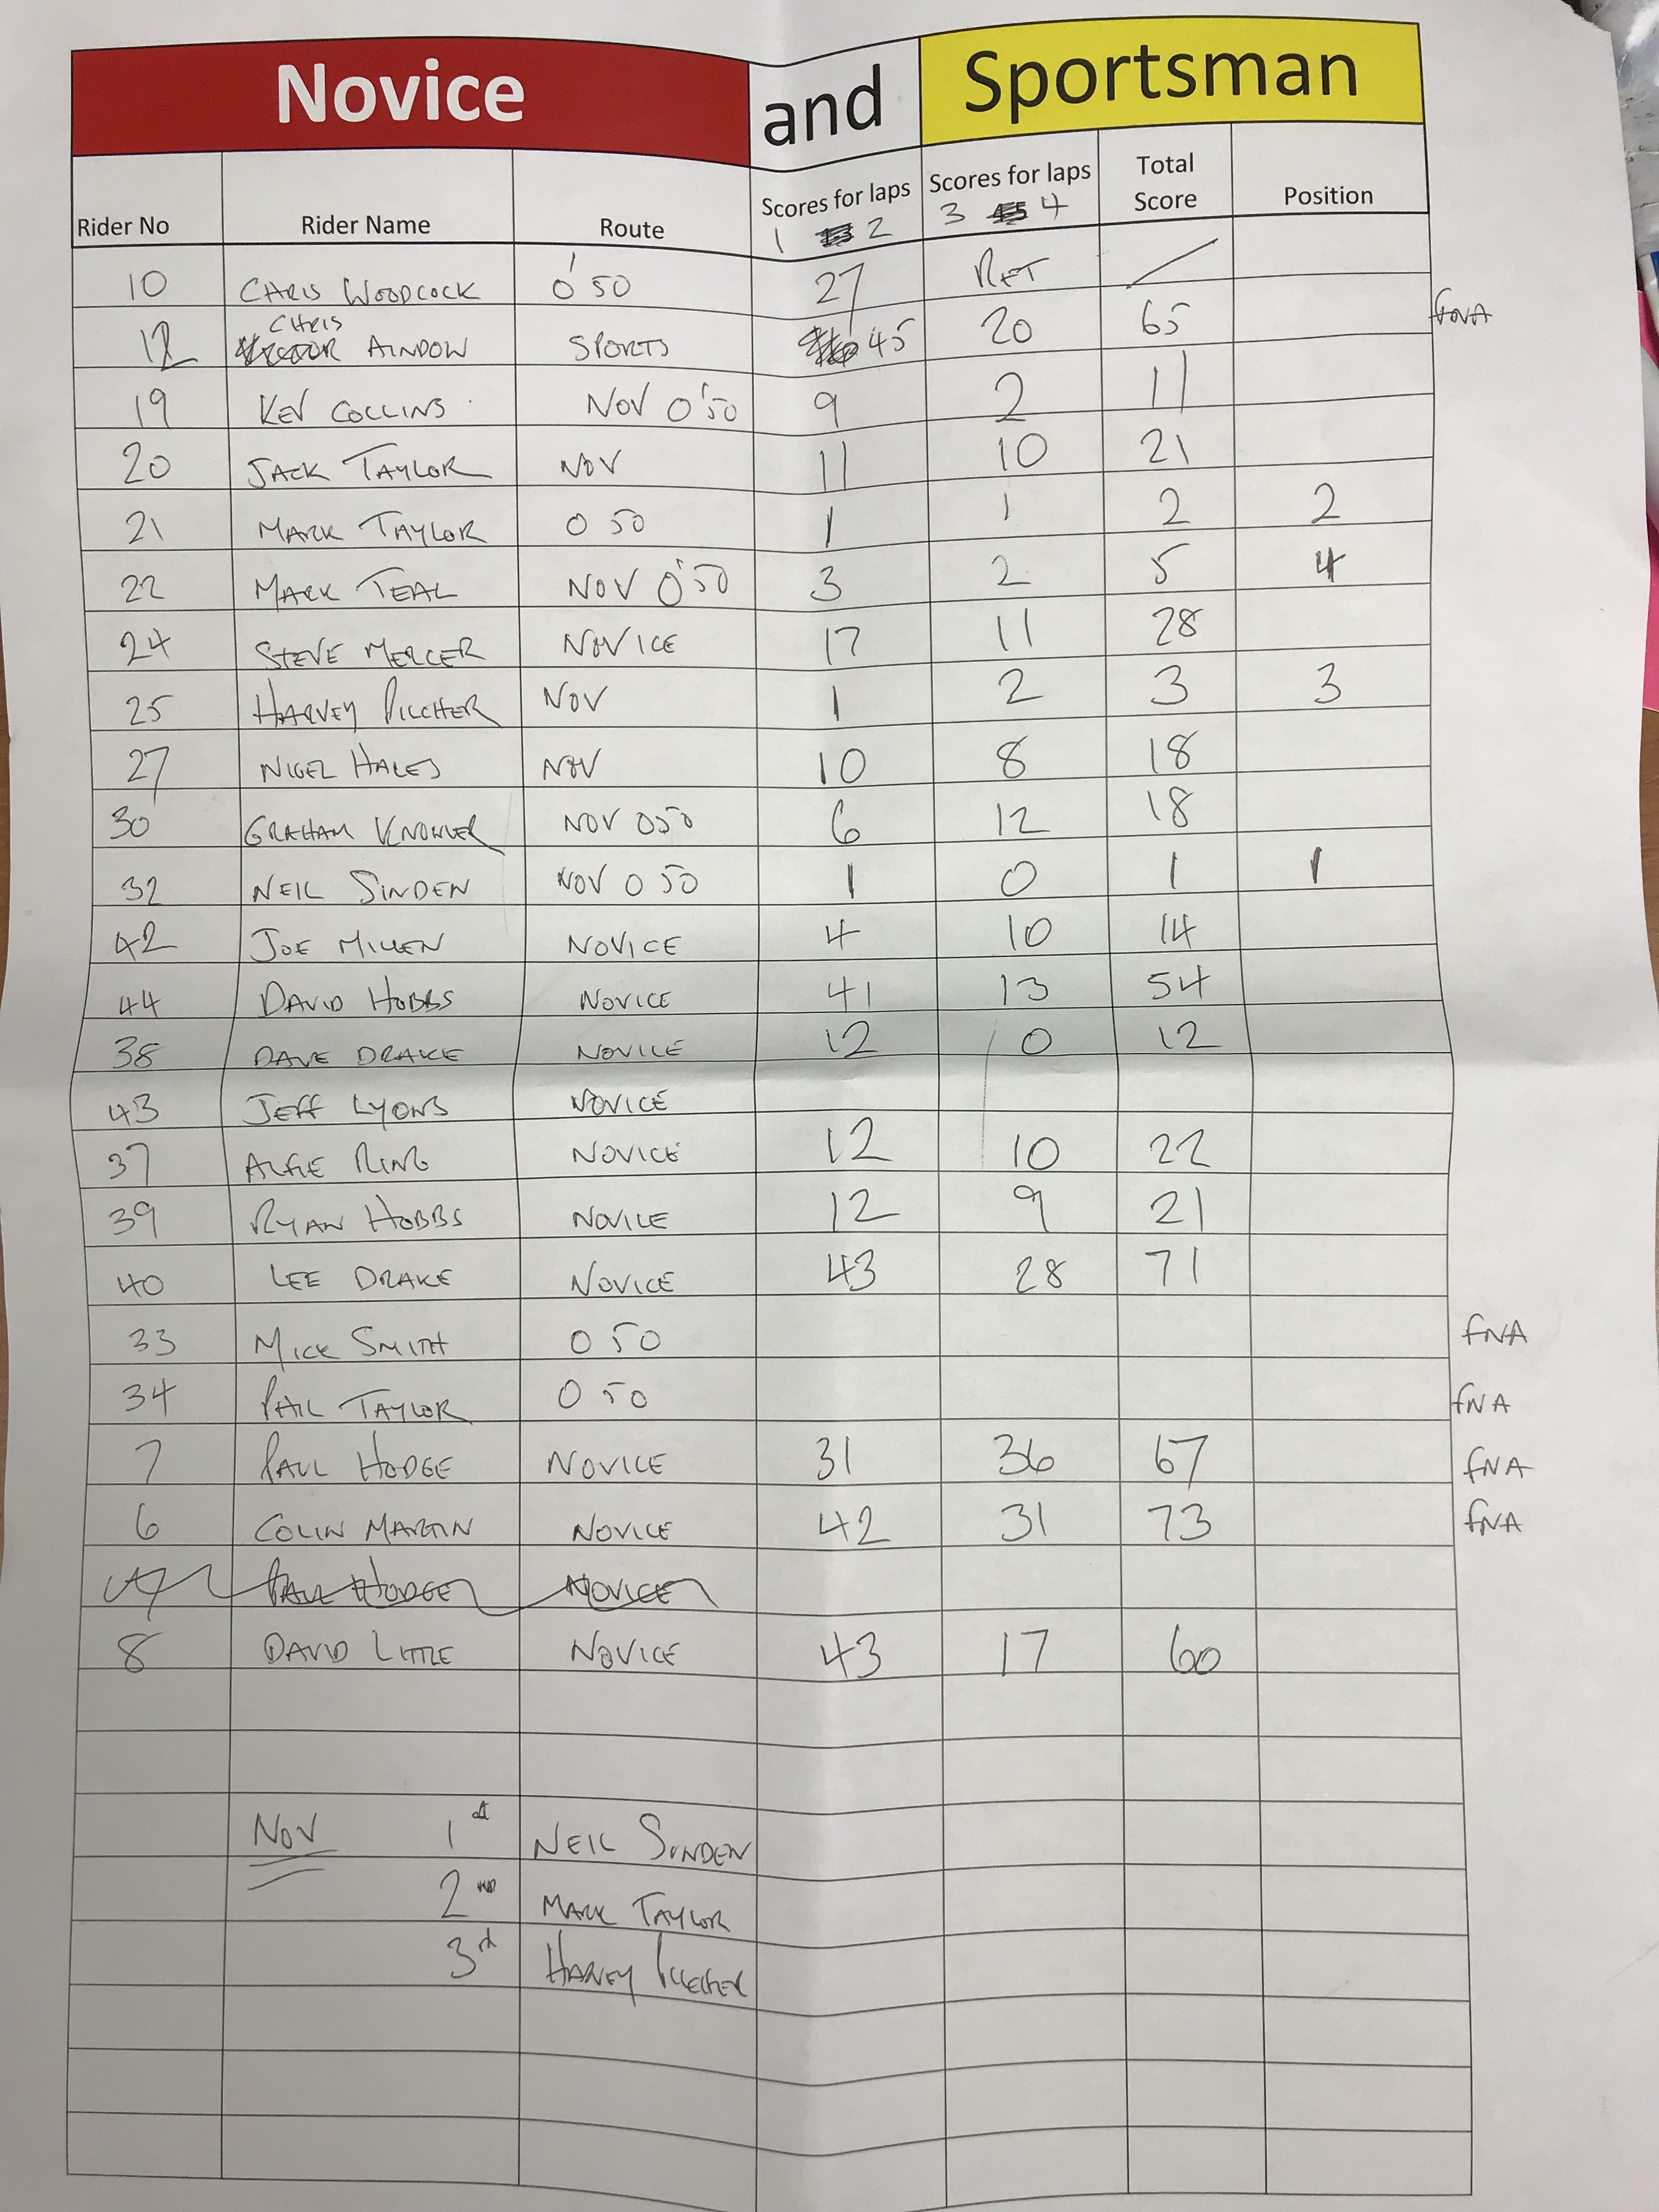 Novice and Sportsman
Rider No Rider Name Route Scores for laps 1 2 Scores for laps 3 4 Total Score Position
10 CHRIS WOODCOCK O'50 27 RET
12 CHRIS AINDOW SPORTS 45 20 65 FNA
19 KEV COLLINS NOV O'50 9 2 11
20 JACK TAYLOR NOV 11 10 21
21 MARK TAYLOR O 50 1 1 2 2
22 MARK TEAL NOV O'50 3 2 5 4
24 STEVE MERCER NOVICE 17 11 28
25 HARVEY PILCHER NOV 1 2 3 3
27 NIGEL HALES NOV 10 8 18
30 GRAHAM KNOWLER NOV O50 6 12 18
32 NEIL SINDEN NOV O 50 1 0 1 1
42 JOE MILLEN NOVICE 4 10 14
44 DAVID HOBBS NOVICE 41 13 54
38 DAVE DRAKE NOVICE 12 0 12
43 JEFF LYONS NOVICE
37 ALFIE RING NOVICE 12 10 22
39 RYAN HOBBS NOVICE 12 9 21
40 LEE DRAKE NOVICE 43 28 71
33 MICK SMITH O 50 FNA
34 PHIL TAYLOR O 50 FNA
7 PAUL HODGE NOVICE 31 36 67 FNA
6 COLIN MARTIN NOVICE 42 31 73 FNA
PAUL HODGE NOVICE
8 DAVID LITTLE NOVICE 43 17 60
NOV 1st NEIL SINDEN
2nd MARK TAYLOR
3rd HARVEY PILCHER